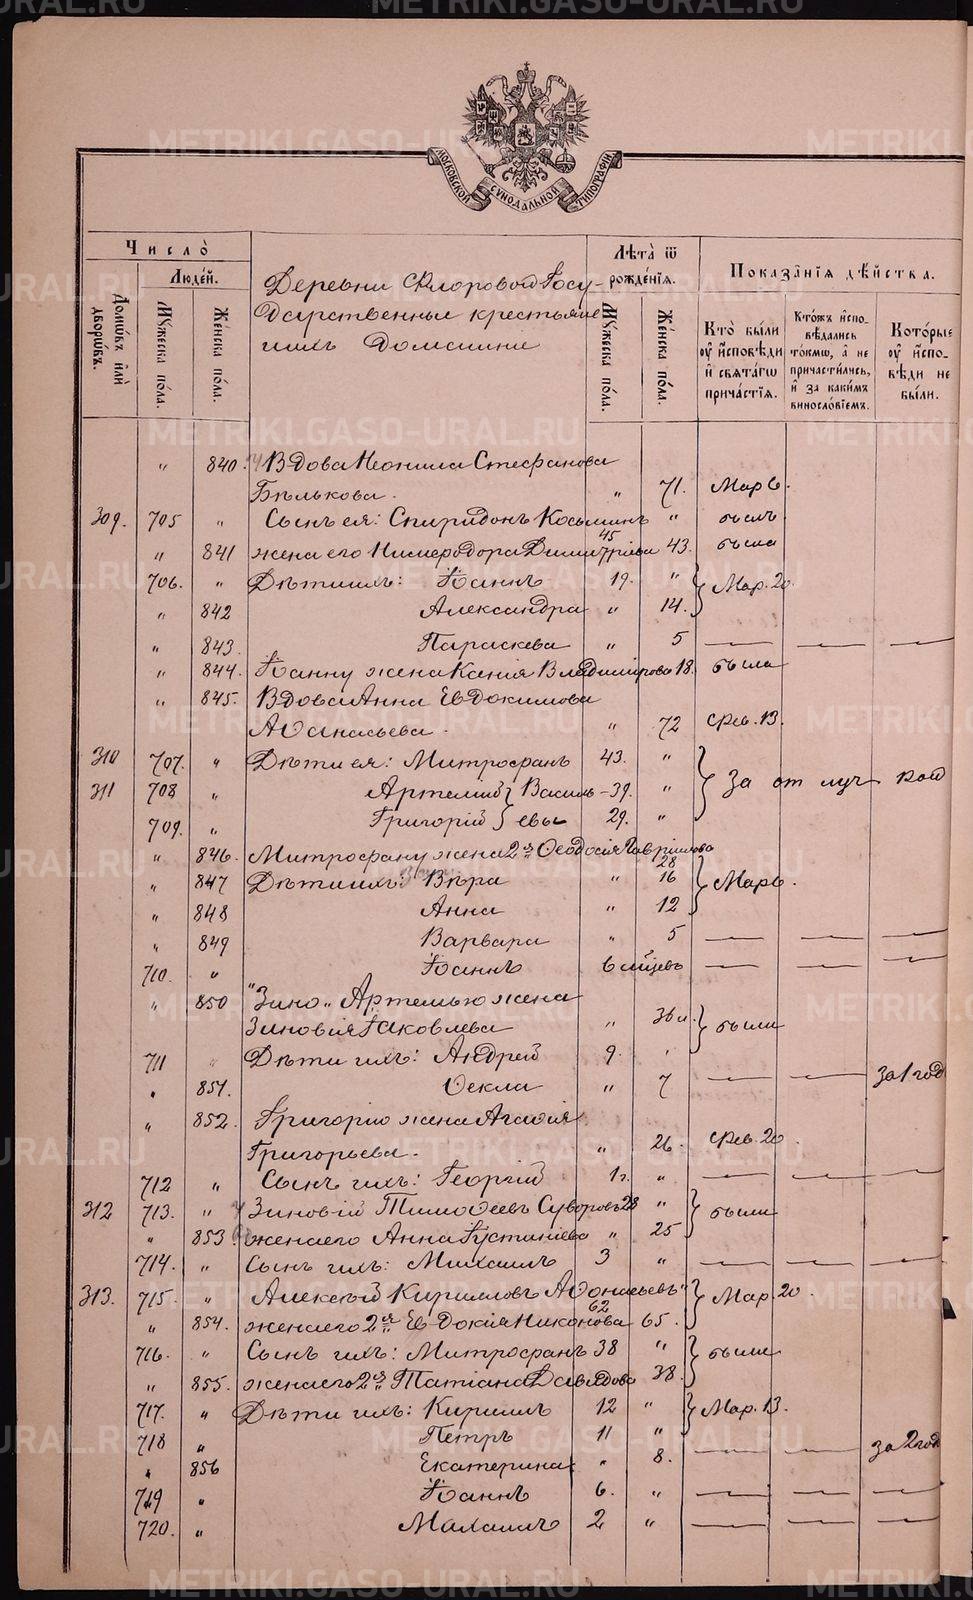 METRIKI.GASO-URAL.RU
МОСКОВСКОЙ СѴНОДАЛЬНОЙ ТИПОГРАФІИ
Число̀
Людей.
Домѡвъ или дворѡвъ.
Мꙋжеска пола.
Женска пола.
Деревни Фл​оровой Госу-
дарственные крестьяне
и ихъ домашние
Лѣта̀ ѿ рожденїѧ.
Мꙋжеска пола.
Женска пола.
Показанїѧ дѣйства.
Кто были оу исповѣди и свѧтагѡ причастїѧ.
Ктожъ исповѣдались токмѡ, а не причастились, и за какимъ винословїемъ.
Которые оу исповѣди не были.
" 840. Вдова Неонила Стефанова
Бѣлькова. " 71. Мар 6.
309. 705 " Сынъ ея: Спиридонъ Косьминъ 45 " былъ
" 841 жена его Нимфодора Димитріева 43. была
706. " Дѣти ихъ: Іоаннъ 19. " Мар. 20.
" 842 Александра " 14.
" 843. Параскева " 5
" 844. Іоанну жена Ксенія Владимірова 18. была
" 845. Вдова Анна Евдокимова
Аѳанасьева. " 72 Фев. 13.
310 707. " Дѣти ея: Митрофанъ 43. "
311 708 " Артемій Василь- 39. " За отлуч кой
709. " Григорій евы 29. "
" 846. Митрофану жена 2я Ѳеодосія Гаврилова 28
" 847 Дѣти ихъ: Вѣра " 16 Мар 6.
" 848 Анна " 12
" 849 Варвара " 5
710. " Іоаннъ 6 мѣцевъ
" 850 "Зино" Артемью жена
Зиновія Іаковлева " 36 л. были
711 " Дѣти ихъ: Андрей 9. "
" 851. Ѳекла " 7 за 1 год
" 852. Григорію жена Агаѳія
Григорьева. " 26. Фев. 20
712 " Сынъ ихъ: Георгій 1 г. "
312 713. " Зиновій Тимоѳеевъ Суворовъ 28 " были
" 853. жена его Анна Іустинієва " 25
714. " Сынъ ихъ: Михаилъ 3 "
313. 715. " Алексѣй Кирилловъ Аѳонасьевъ 62 " Мар. 20.
" 854. жена его 2я Евдокія Никонова 65.
716. " Сынъ ихъ: Митрофанъ 38 " были
" 855. жена его 2я Татіана Давидова 38.
717. " Дѣти ихъ: Кириллъ 12 " Мар. 13.
718 " Петръ 11 "
" 856 Екатерина " 8. за 2 год
719 " Іоаннъ 6. "
720. " Михаилъ 2 "
METRIKI.GASO-URAL.RU